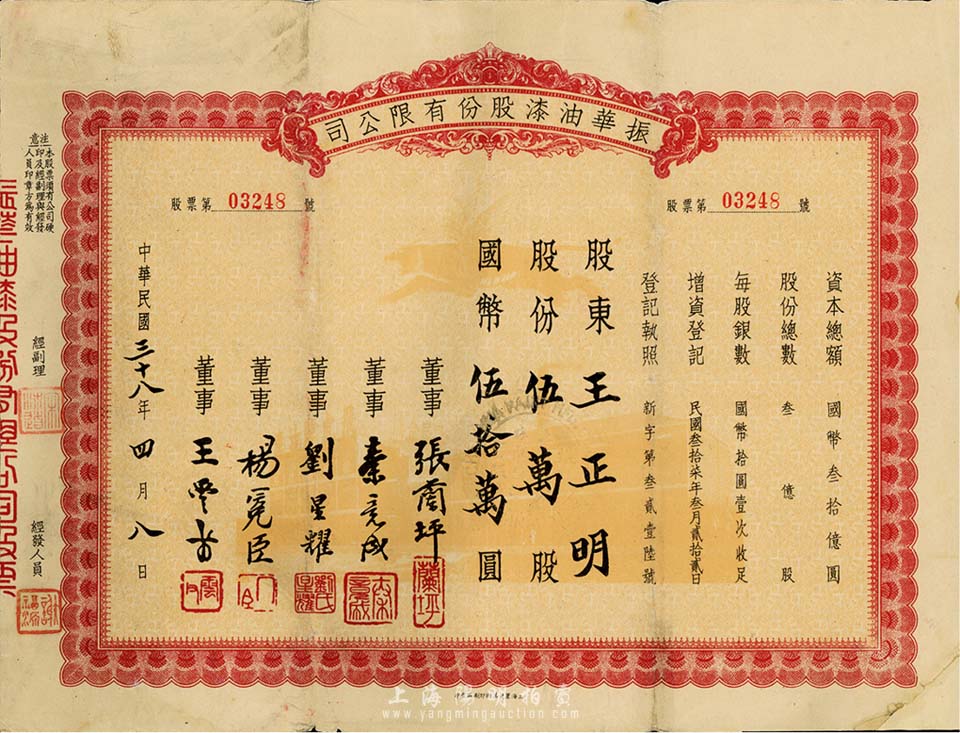 振華油漆股份有限公司
股票第 03248 號
股票第 03248 號
資本總額 國幣叁拾億圓
股份總數 叁億股
每股銀數 國幣拾圓壹次收足
增資登記 民國叁拾柒年叁月貳拾貳日
登記執照 新字第叁貳壹陸號
股東 王正明
股份 伍萬股
國幣 伍拾萬圓
董事 張蘭坪
董事 秦亮成
董事 劉星耀
董事 楊冕臣
董事 王雲甫
中華民國三十八年四月八日
注意
本股票須有公司硬
印及經副理與經發
人員印章方為有效
經副理
經發人員
蘭坪
上海陽明拍賣
www.yangmingauction.com